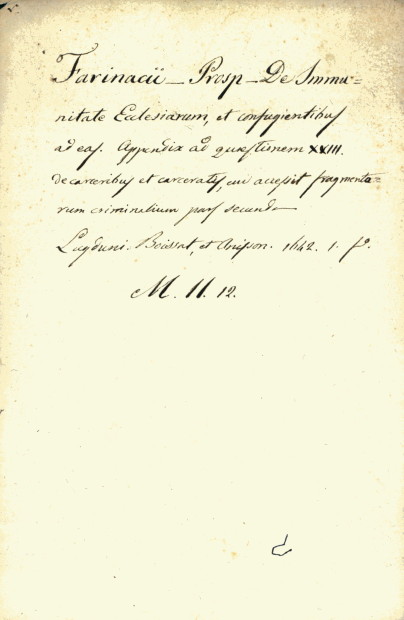 Farinacii – Prosp – De Immu=
nitate Ecclesiarum, et confugientibus
ad eas. Appendix ad quæstionem XXIII.
de carceribus et carceratis, cui accessit fragmento=
rum criminalium pars secunda
Lugduni. Boissat, et Anisson. 1642. 1. fo.
M. II. 12.